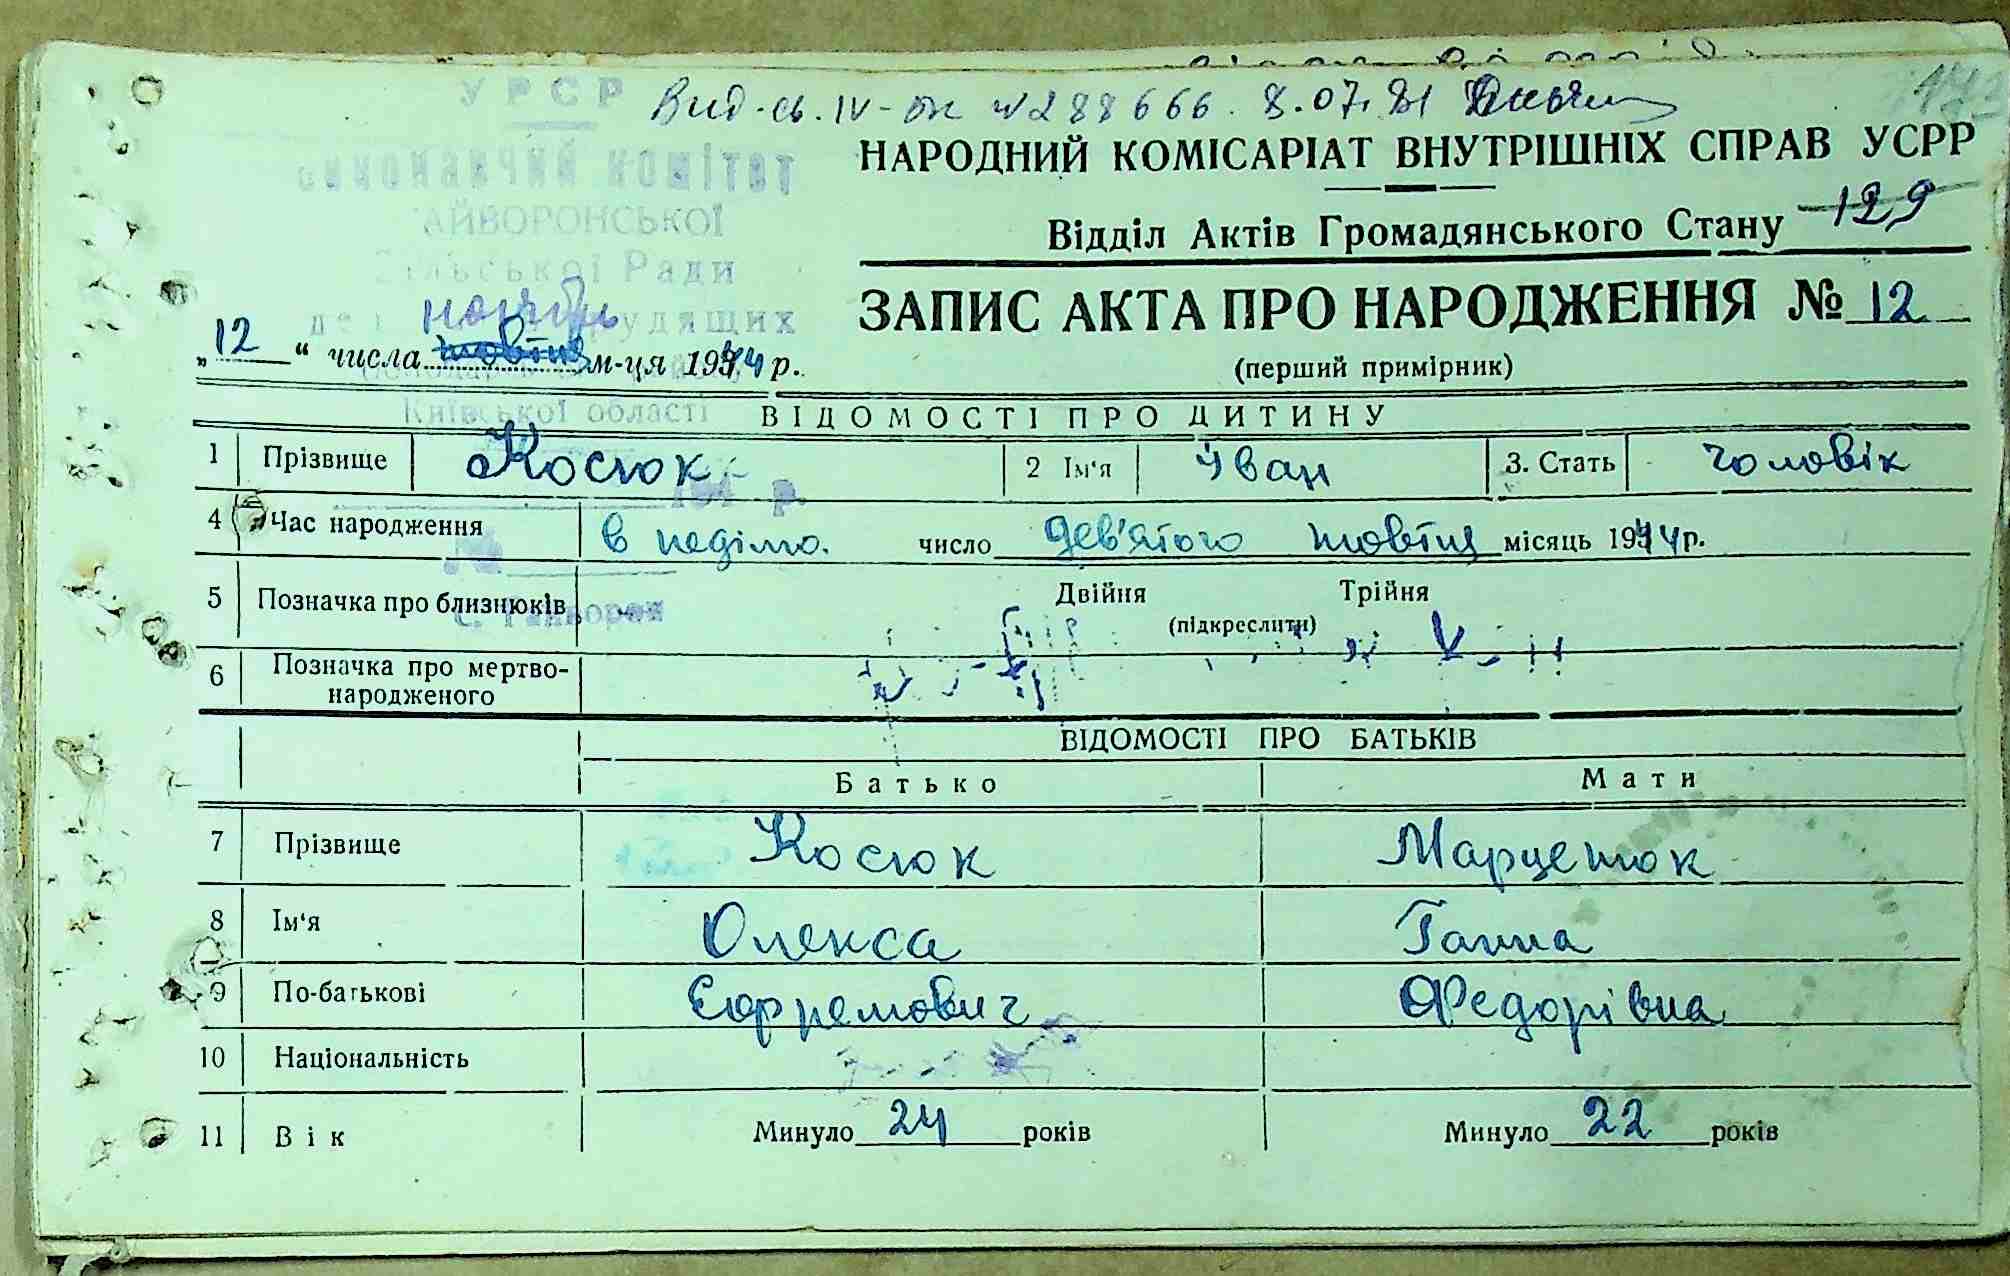 УРСР
Вид. св. IV-ок №288666. 8.07.81
виконавчий комітет
НАРОДНИЙ КОМІСАРІАТ ВНУТРІШНІХ СПРАВ УСРР
АЙВОРОНСЬКОЇ
Відділ Актів Громадянського Стану 129
Сільської Ради
ЗАПИС АКТА ПРО НАРОДЖЕННЯ № 12
(перший примірник)
„12“ числа ноябрь жовтня м-ця 1944 р.
Київської області
ВІДОМОСТІ ПРО ДИТИНУ
1 Прізвище Косюк 2 Ім'я Іван 3. Стать чоловік
194 р.
4 Час народження в неділю. число Дев'ятого жовтня місяць 1944 р.
№
5 Позначка про близнюків Двійня Трійня
(підкреслити)
с. Гайворон
6 Позначка про мертво-
народженого
ВІДОМОСТІ ПРО БАТЬКІВ
Батько Мати
7 Прізвище Косюк Марценюк
8 Ім'я Олекса Ганна
9 По-батькові Єфремович Федорівна
10 Національність
11 Вік Минуло 24 років Минуло 22 років